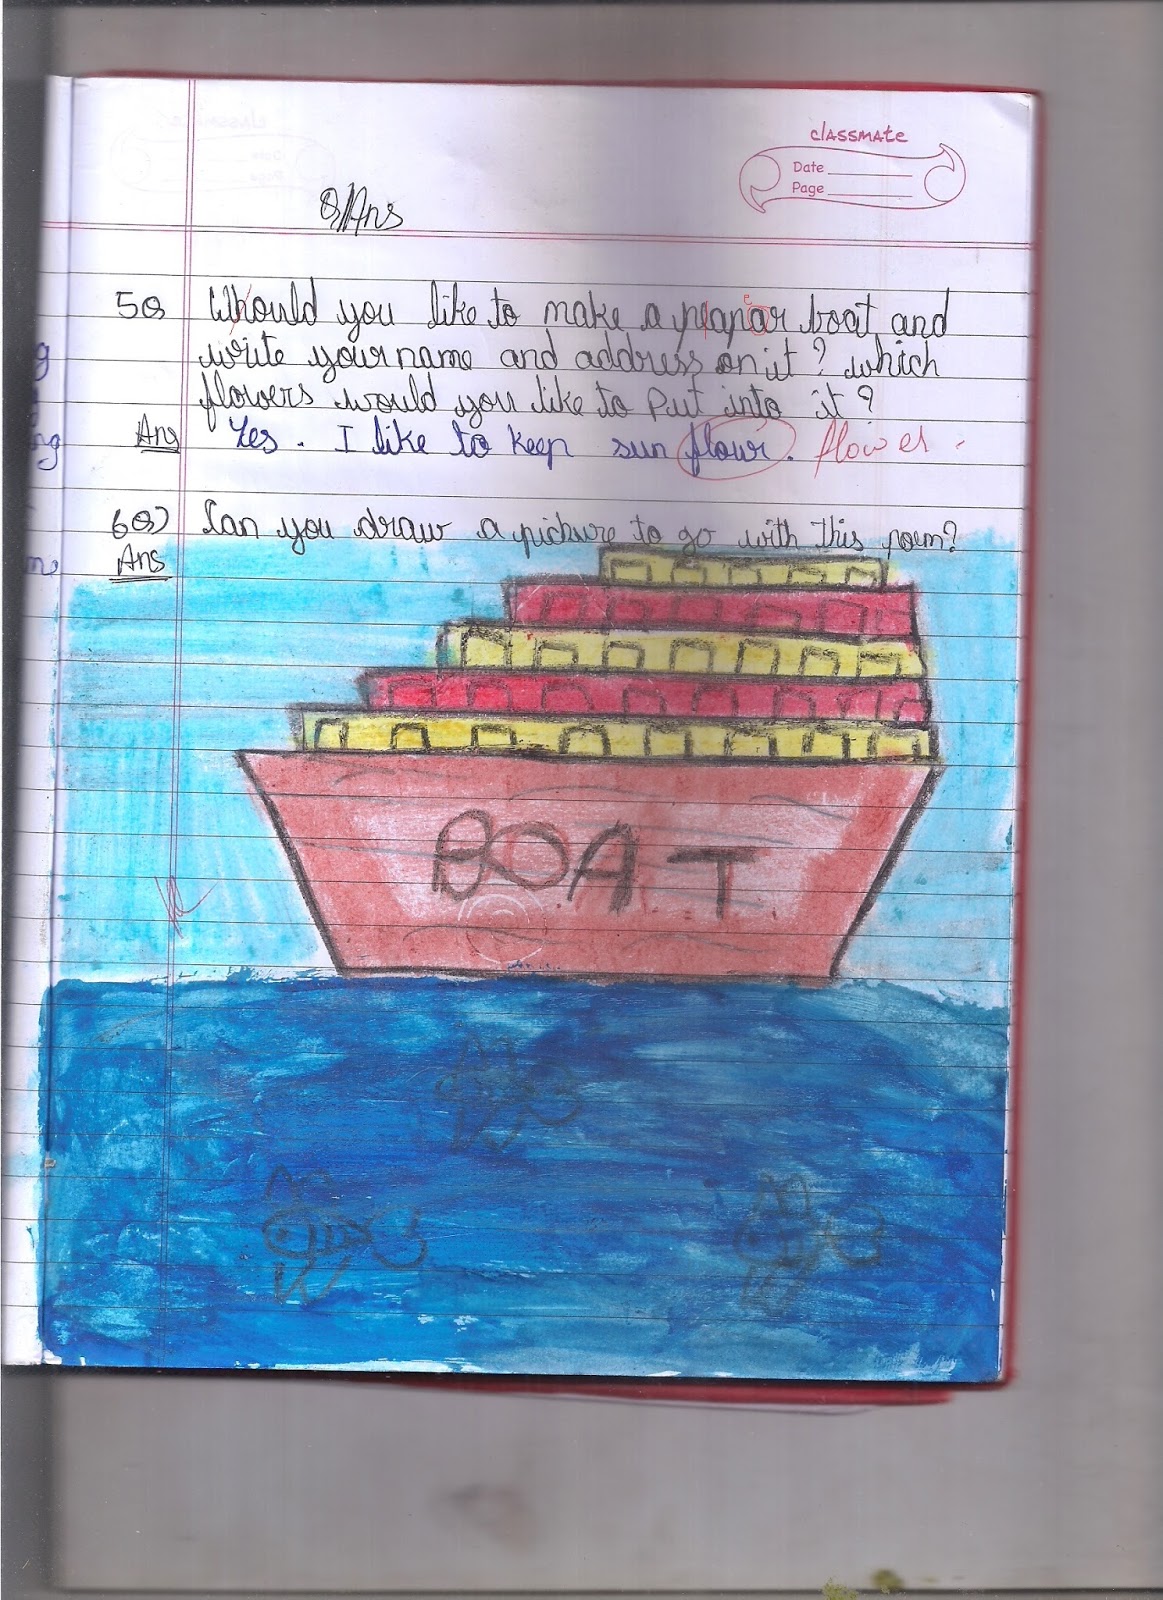 classmate
Date
Page
Q/Ans
5Q Whould you like to make a peapar boat and
write your name and address on it? which
flowers would you like to Put into it?
Ans Yes. I like to keep sun flour. flower.
6Q) Can you draw a picture to go with this poem?
Ans
BOAT